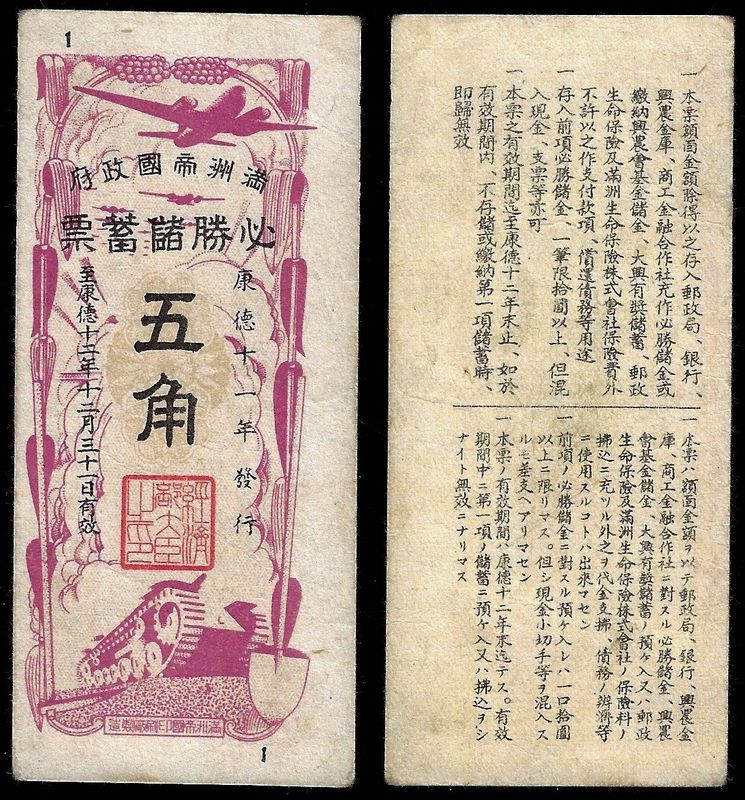 1
滿洲帝國政府
必勝儲蓄票
康德十一年發行
五角
至康德十二年十二月三十一日有效
經濟部大臣之印
滿洲帝國印刷廠製造
1
一 本票額面金額除得以之存入郵政局、銀行、
興農金庫、商工金融合作社充作必勝儲金或
繳納興農會基金儲金、大興有獎儲蓄、郵政
生命保險及滿洲生命保險株式會社保險費外
不許以之作支付款項、償還債務等用途
一 存入前項必勝儲金、一筆限拾圓以上、但混
入現金、支票等亦可
一 本票之有效期間迄至康德十二年末止、如於
有效期間內、不存儲或繳納第一項儲蓄時、
即歸無效
一 本票ハ額面金額ヲ以テ郵政局、銀行、興農金
庫、商工金融合作社ニ對スル必勝儲金、興農
會基金儲金、大興有獎儲蓄ノ預ケ入又ハ郵政
生命保險及滿洲生命保險株式會社ノ保險料ノ
拂込ニ充ツル外之ヲ代金支拂、債務ノ辨濟等
ニ使用スルコトハ出來マセン
一 前項ノ必勝儲金ニ對スル預ケ入レハ一口拾圓
以上ニ限リマス。但シ現金小切手等ヲ混入ス
ルモ差支ヘアリマセン
一 本票ノ有效期間ハ康德十二年末迄テス。有效
期間中ニ第一項ノ儲蓄ニ預ケ入又ハ拂込ヲシ
ナイト無效ニナリマス